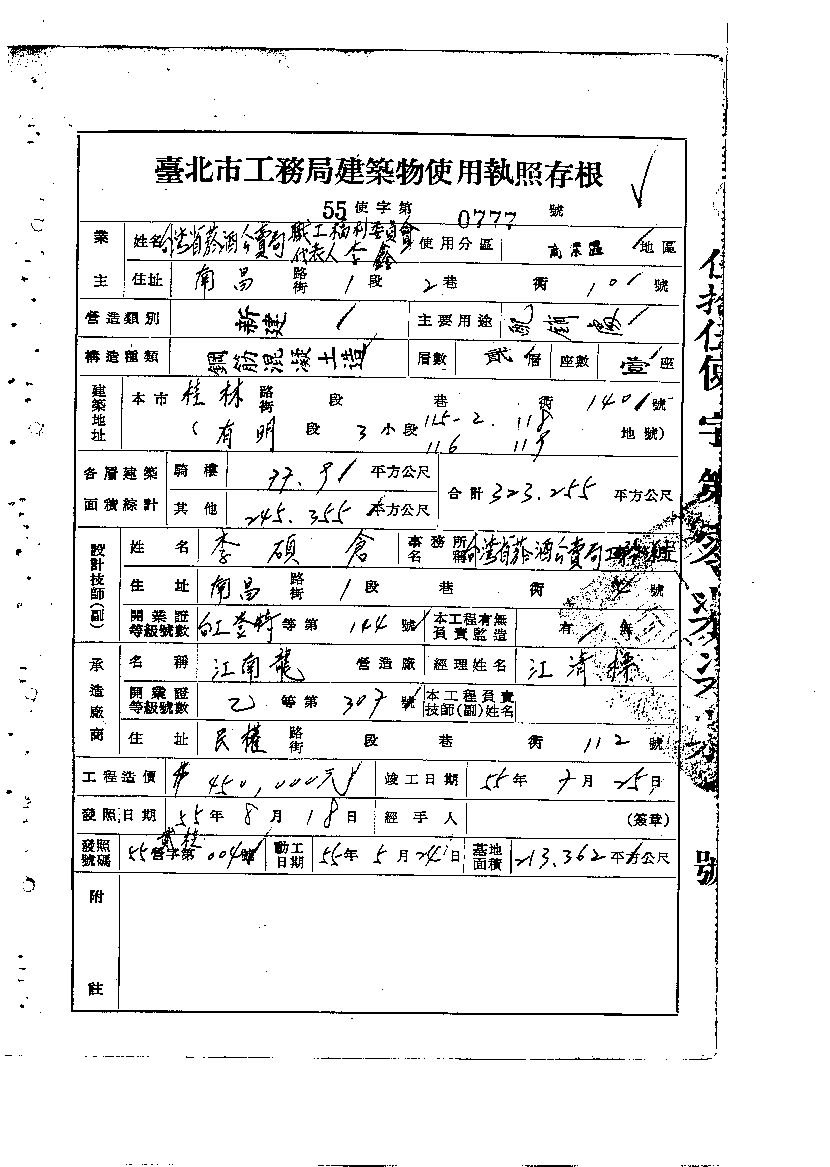 臺北市工務局建築物使用執照存根
55使字第 0777 號
業主 姓名 台灣省菸酒公賣局職工福利委員會代表人李鑫 使用分區 商業區 地區
住址 南昌 路街 1 段 2 巷 街 1 0 1 號
營造類別 新建 主要用途
構造種類 鋼筋混凝土造 層數 貳層 座數 壹座
建築地址 本市 桂林 路街 段 巷 街 140 號
(有明 段 3 小段 115-2. 118 116 119 地號)
各層建築面積綜計 騎樓 平方公尺 合計 323.255 平方公尺
其他 245.355 平方公尺
設計技師(副) 姓名 李碩倉 事務所名稱 台灣省菸酒公賣局
住址 南昌 路街 1 段 巷 街 4 號
開業證等級號數 等第 144 號 本工程有無負責監造 有
承造廠商 名稱 江南龍 營造廠 經理姓名 江清標
開業證等級號數 乙 等第 307 號 本工程負責技師(副)姓名
住址 民權 路街 段 巷 街 112 號
工程造價 450,000元 竣工日期 55年 7月 25日
發照日期 55年 8月 18日 經手人 (簽章)
發照號碼 55營字第 004 號 動工日期 55年 5月 24日 基地面積 213.362 平方公尺
附註
伍拾伍使字第
號